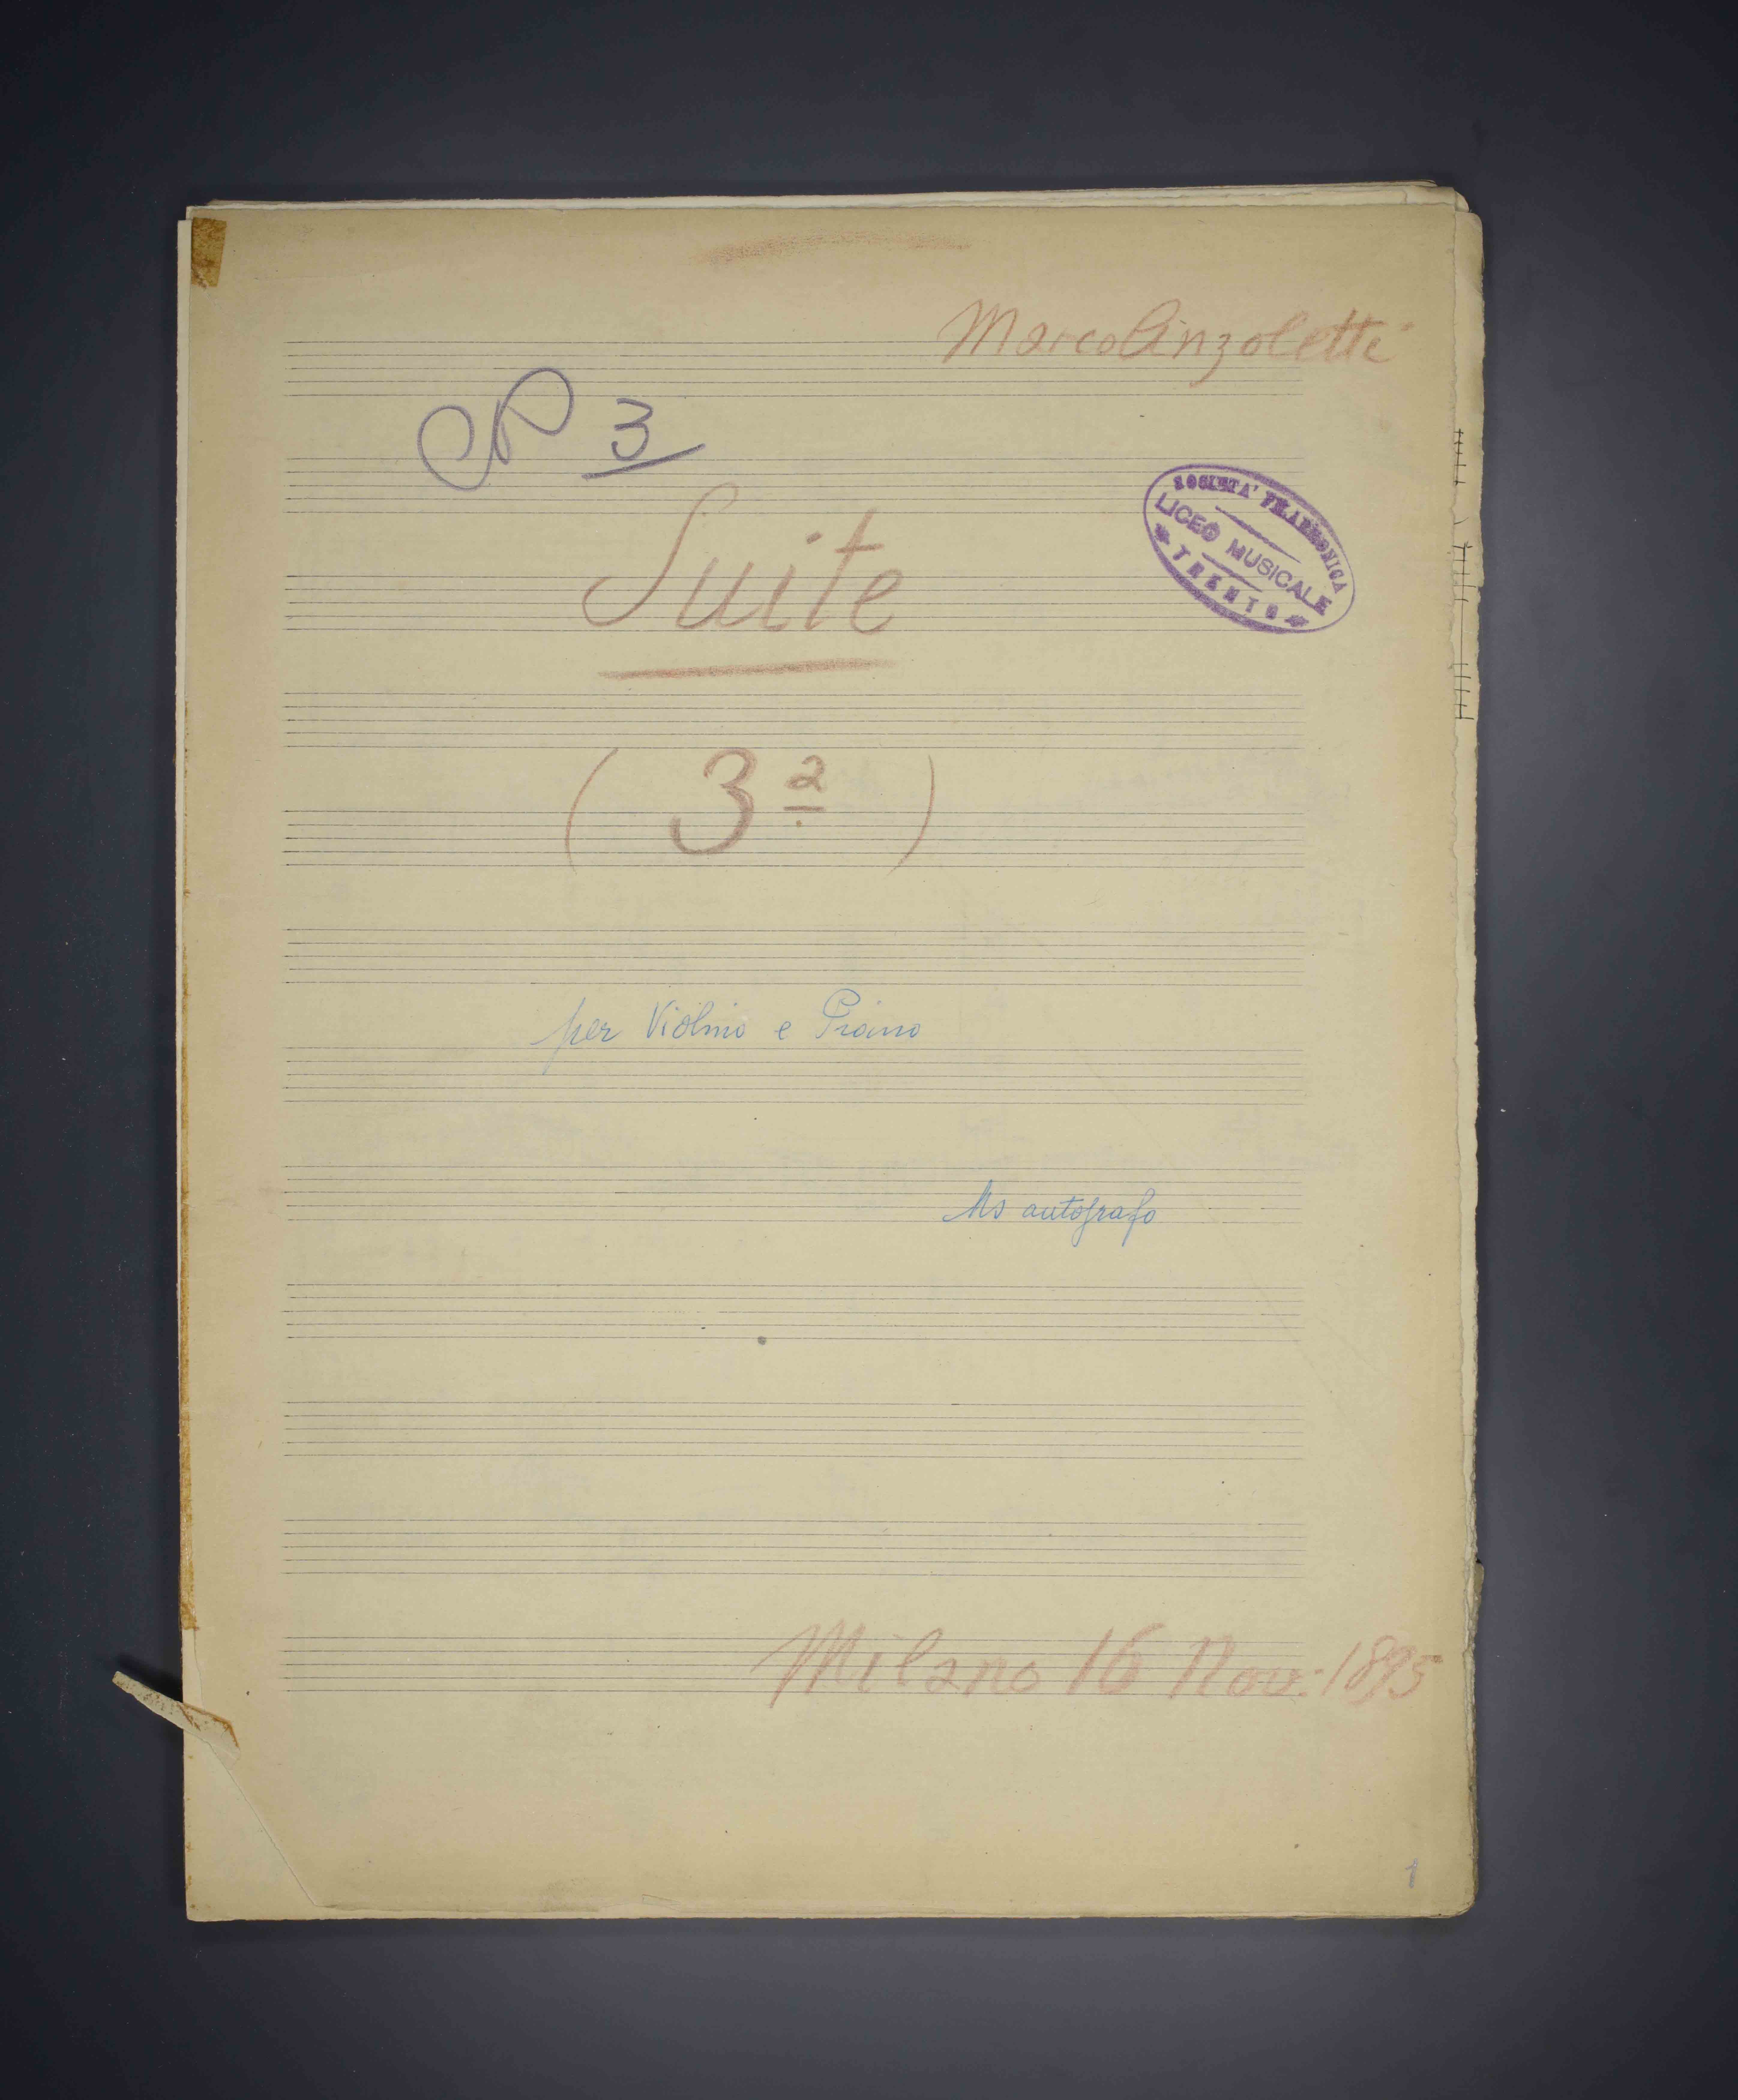 Marco Anzoletti
3
Suite
SOCIETA' FILARMONICA
LICEO MUSICALE
TRENTO
(3a)
per Violino e Piano
Ms autografo
Milano 16 Nov: 1895
1